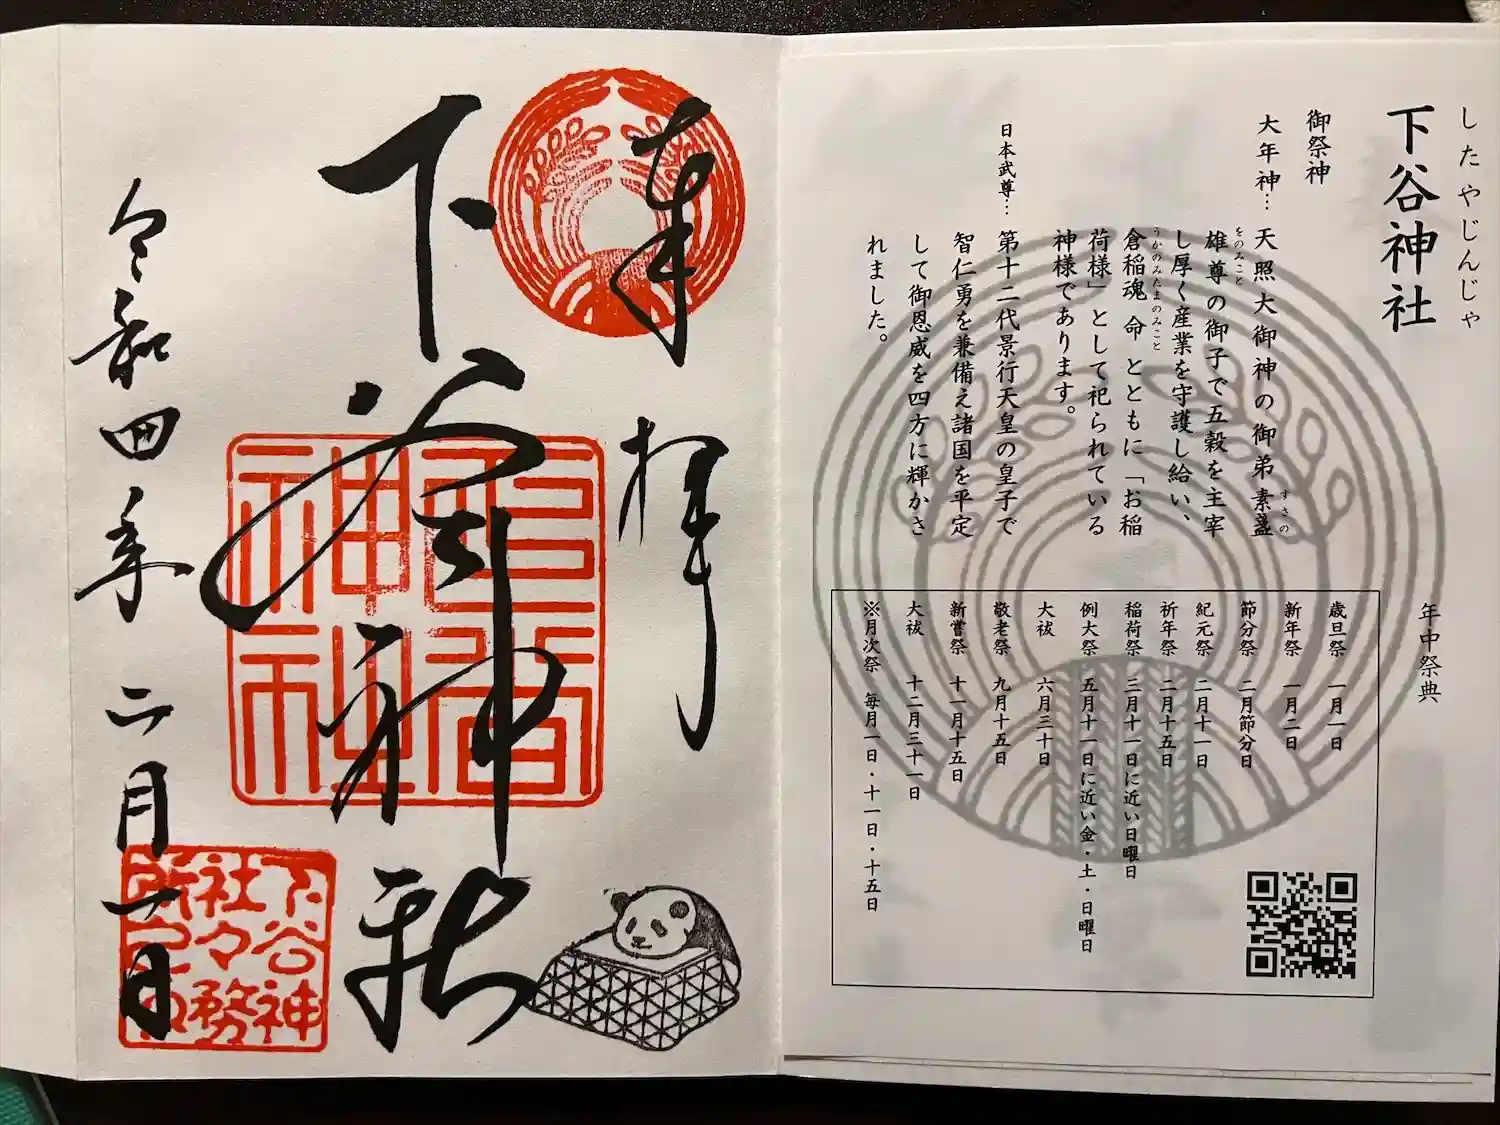 したやじんじゃ
下谷神社
御祭神
大年神…
天照大御神の御弟素盞
すさの
雄尊の御子で五穀を主宰
をのみこと
し厚く産業を守護し給い、
倉稲魂命とともに「お稲
うかのみたまのみこと
荷様」として祀られている
神様であります。
日本武尊…
第十二代景行天皇の皇子で
智仁勇を兼備え諸国を平定
して御恩威を四方に輝かさ
れました。
年中祭典
歳旦祭 一月一日
新年祭 一月二日
節分祭 二月節分日
紀元祭 二月十一日
祈年祭 二月十五日
稲荷祭 三月十一日に近い日曜日
例大祭 五月十一日に近い金・土・日曜日
大祓 六月三十日
敬老祭 九月十五日
新嘗祭 十一月十五日
大祓 十二月三十一日
※月次祭 毎月一日・十一日・十五日
奉拝
下谷神社
令和四年二月一日
下谷神
社々務
所之印